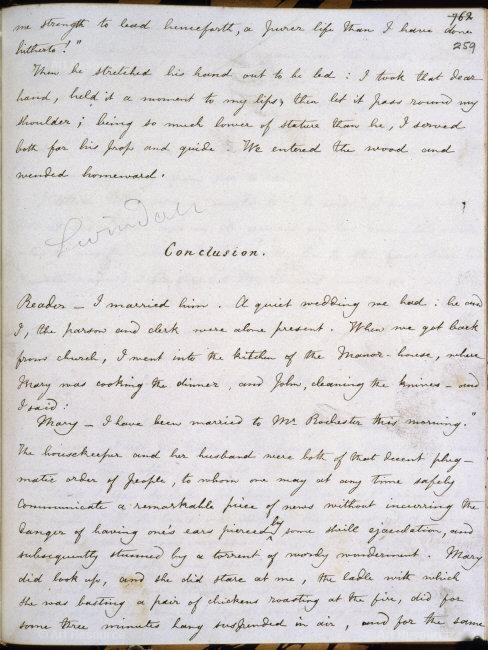 762
259
me strength to lead henceforth, a purer life than I have done
hitherto!"
Then he stretched his hand out to be led: I took that dear
hand, held it a moment to my lips, then let it pass round my
shoulder; being so much lower of stature than he, I served
both for his prop and guide. We entered the wood and
wended homeward.
Conclusion.
Reader — I married him. A quiet wedding we had: he and
I, the parson and clerk were alone present. When we got back
from church, I went into the kitchen of the Manor-house, where
Mary was cooking the dinner, and John, cleaning the knives — and
I said:
Mary — I have been married to Mr Rochester this morning."
The housekeeper and her husband were both of that decent phleg-
matic order of people, to whom one may at any time safely
communicate a remarkable piece of news without incurring the
danger of having one's ears pierced by some shrill ejaculation, and
subsequently stunned by a torrent of wordy wonderment. Mary
did look up, and she did stare at me, the ladle with which
she was basting a pair of chickens roasting at the fire, did for
some three minutes hang suspended in air, and for the same